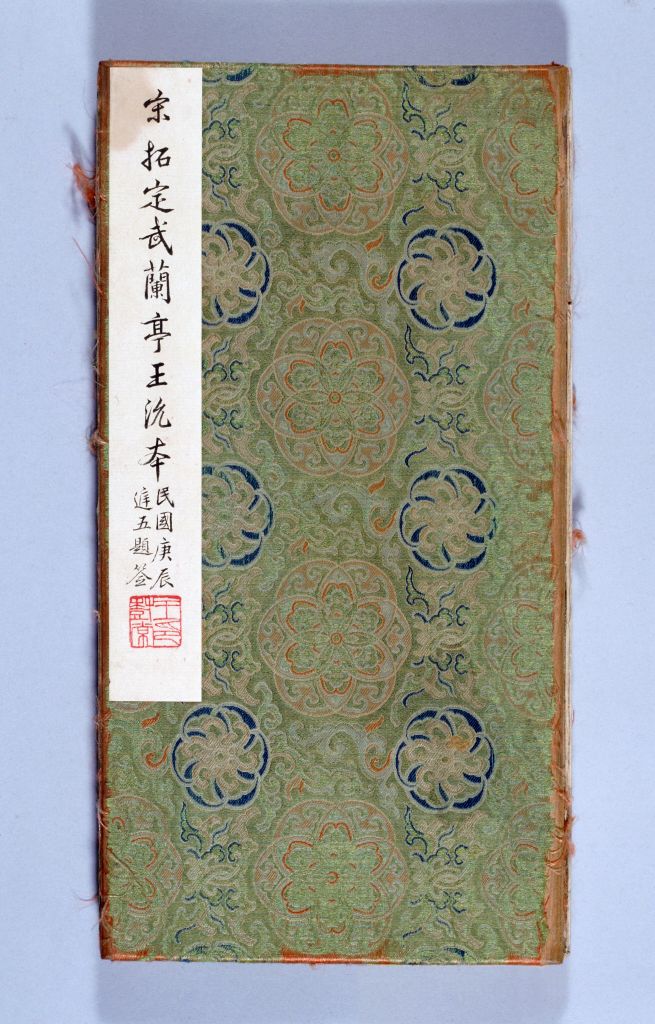 宋拓定武蘭亭王沇本
民國庚辰
五題签